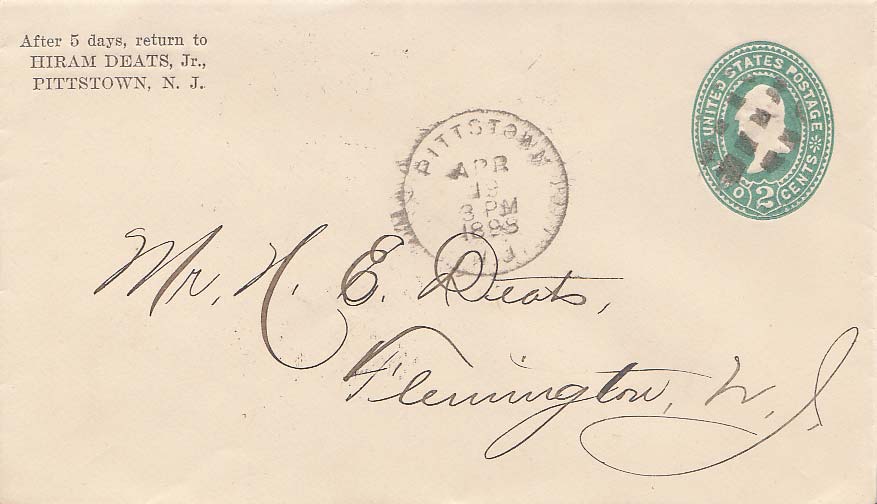 After 5 days, return to
HIRAM DEATS, Jr.,
PITTSTOWN, N. J.
UNITED STATES POSTAGE
TWO 2 CENTS
PITTSTOWN
APR
19
3 PM
1898
Mr. H. E. Deats,
Flemington, N. J.